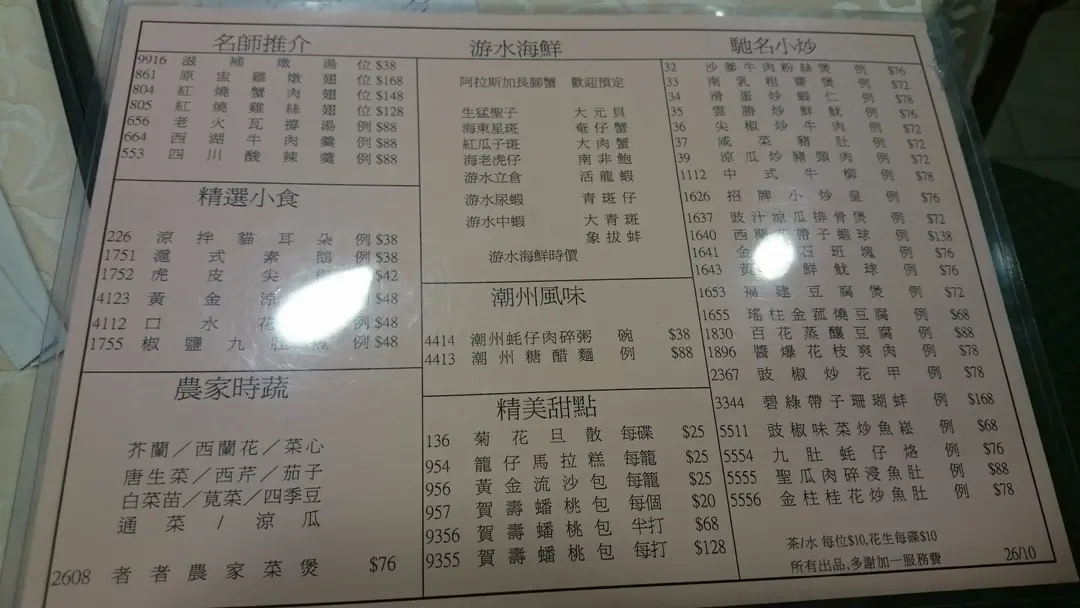 名師推介
9916 滋補燉湯 位 $38
861 原盅雞燉翅 位 $168
804 紅燒蟹肉翅 位 $148
805 紅燒雞絲翅 位 $128
656 老火瓦撐湯 例 $88
664 西湖牛肉羹 例 $88
553 四川酸辣羹 例 $88
精選小食
226 涼拌貓耳朵 例 $38
1751 滬式素鵝 例 $38
1752 虎皮尖 $42
4123 黃金涼 $48
4112 口水花 例 $48
1755 椒鹽九肚 例 $48
農家時蔬
芥蘭/西蘭花/菜心
唐生菜/西芹/茄子
白菜苗/莧菜/四季豆
通菜/涼瓜
2608 者者農家菜煲 $76
游水海鮮
阿拉斯加長腳蟹 歡迎預定
生猛聖子 大元貝
海東星斑 奄仔蟹
紅瓜子斑 大肉蟹
海老虎仔 南非鮑
游水立倉 活龍蝦
游水尿蝦 青斑仔
游水中蝦 大青斑
象拔蚌
游水海鮮時價
潮州風味
4414 潮州蚝仔肉碎粥 碗 $38
4413 潮州糖醋麵 例 $88
精美甜點
136 菊花旦散 每碟 $25
954 籠仔馬拉糕 每籠 $25
956 黃金流沙包 每籠 $25
957 賀壽蟠桃包 每個 $20
9356 賀壽蟠桃包 半打 $68
9355 賀壽蟠桃包 每打 $128
馳名小炒
32 沙爹牛肉粉絲煲 例 $76
33 南乳粗齋煲 例 $72
34 滑蛋炒蝦仁 例 $78
35 雲勝炒鮮魷 例 $76
36 尖椒炒牛肉 例 $72
37 咸菜豬肚 例 $72
39 涼瓜炒豬頸肉 例 $72
1112 中式牛柳 例 $78
1626 招牌小炒皇 例 $76
1637 豉汁涼瓜排骨煲 例 $72
1640 西蘭花帶子蝦球 例 $138
1641 金 石班塊 例 $76
1643 黃 鮮魷球 例 $76
1653 福建豆腐煲 例 $72
1655 瑤柱金菰燒豆腐 例 $68
1830 百花蒸釀豆腐 例 $88
1896 醬爆花枝爽肉 例 $78
2367 豉椒炒花甲 例 $78
3344 碧綠帶子珊瑚蚌 例 $168
5511 豉椒味菜炒魚崧 例 $68
5554 九肚蚝仔烙 例 $76
5555 聖瓜肉碎浸魚肚 例 $88
5556 金柱桂花炒魚肚 例 $78
茶/水 每位$10,花生每碟$10
所有出品,多謝加一服務費
26/10